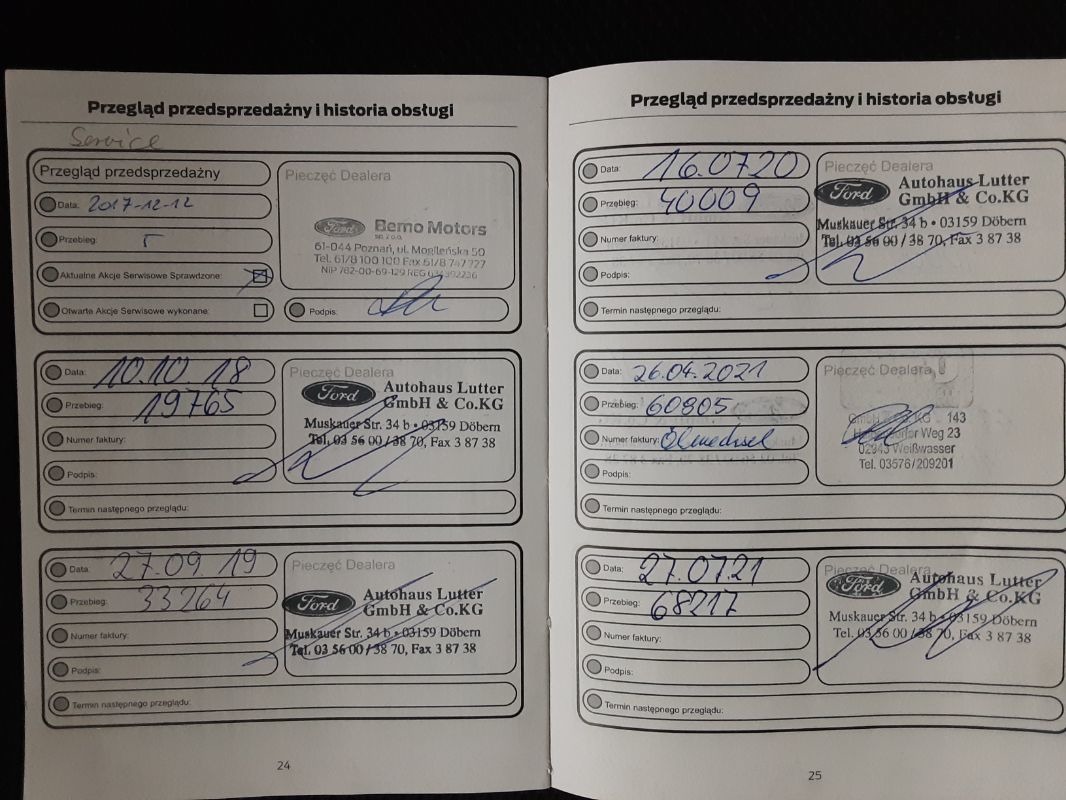 Przegląd przedsprzedażny i historia obsługi
Service
Przegląd przedsprzedażny
Data: 2017-12-12
Przebieg:
Aktualne Akcje Serwisowe Sprawdzone:
Otwarte Akcje Serwisowe wykonane:
Pieczęć Dealera
Ford Bemo Motors
sp. z o.o.
61-044 Poznań, ul. Mogileńska 50
Tel. 61/8 100 100 Fax 61/8 747 727
NIP 782-00-69-129 REG
Podpis:
Data: 10.10 18
Przebieg: 19765
Numer faktury:
Podpis:
Termin następnego przeglądu:
Pieczęć Dealera
Ford Autohaus Lutter
GmbH & Co.KG
Muskauer Str. 34 b • 03159 Döbern
Tel. 03 56 00 / 38 70, Fax 3 87 38
Data: 27.09.19
Przebieg: 33264
Numer faktury:
Podpis:
Termin następnego przeglądu:
Pieczęć Dealera
Ford Autohaus Lutter
GmbH & Co.KG
Muskauer Str. 34 b • 03159 Döbern
Tel. 03 56 00 / 38 70, Fax 3 87 38
24
Przegląd przedsprzedażny i historia obsługi
Data: 16.0720
Przebieg: 40009
Numer faktury:
Podpis:
Termin następnego przeglądu:
Pieczęć Dealera
Ford Autohaus Lutter
GmbH & Co.KG
Muskauer Str. 34 b • 03159 Döbern
Tel. 03 56 00 / 38 70, Fax 3 87 38
Data: 26.04.2021
Przebieg: 60805
Numer faktury: Ölwechsel
Podpis:
Termin następnego przeglądu:
Pieczęć Dealera
GmbH & Co. KG 143
Weg 23
02943 Weißwasser
Tel. 03576/209201
Data: 27.0721
Przebieg: 68217
Numer faktury:
Podpis:
Termin następnego przeglądu:
Pieczęć Dealera
Ford Autohaus Lutter
GmbH & Co.KG
Muskauer Str. 34 b • 03159 Döbern
Tel. 03 56 00 / 38 70, Fax 3 87 38
25